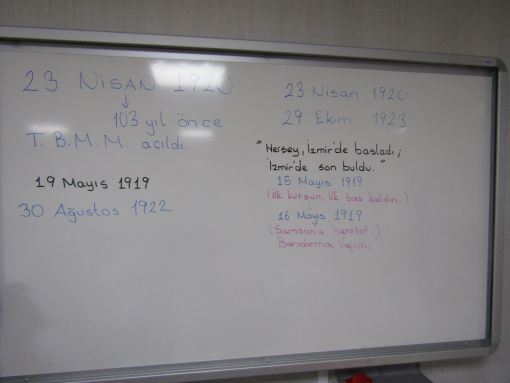 23 NisAN 1920
↓
103 yıl önce
T. B.M.M. açıldı.
19 Mayıs 1919
30 Ağustos 1922
23 Nisan 1920
29 Ekim 1923
"Herşey, İzmir'de başladı;
İzmir'de son buldu."
15 Mayıs 1919
(İlk kurşun, ilk baş kaldırı.)
16 Mayıs 1919
(Samsun'a hareket..)
Bandırma Vapuru